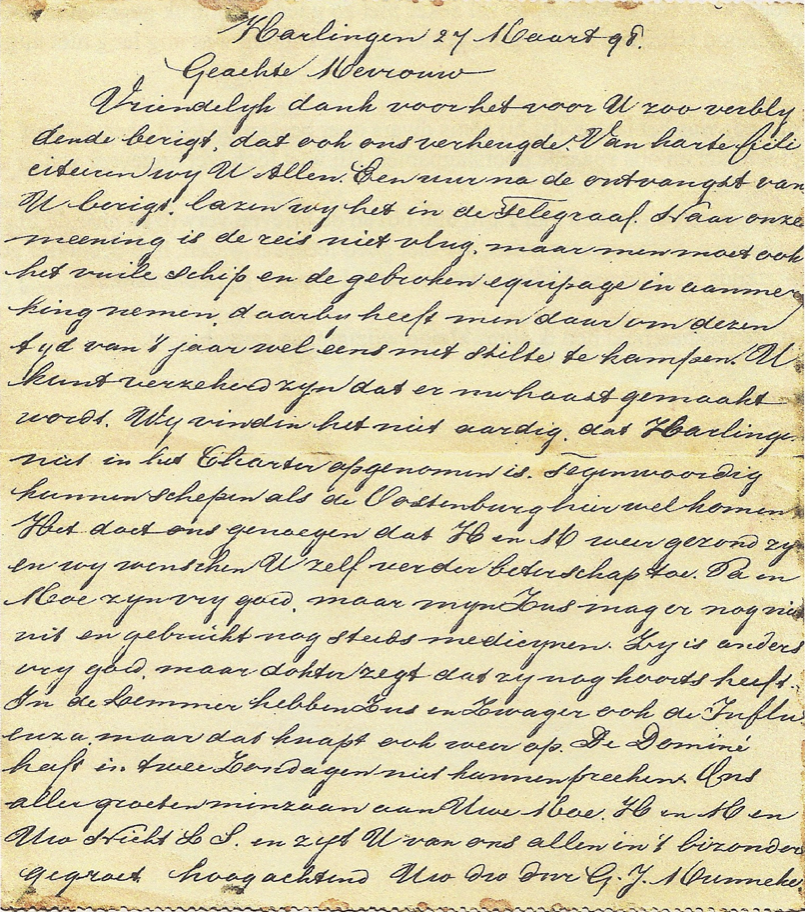 Harlingen 27 Maart 98.
Geachte Mevrouw
Vriendelijk dank voor het voor U zoo verblij
dende berigt, dat ook ons verheugde. Van harte feli
citeeren wij U Allen. Een uur na de ontvangst van
U berigt, lazen wij het in de Telegraaf. Naar onze
meening is de reis niet vlug, maar men moet ook
het vuile schip en de gebroken equipage in aanmer
king nemen, daarby heeft men daar om dezen
tyd van 't jaar wel eens met stilte te kampen. U
kunt verzekerd zyn dat er nu haast gemaakt
wordt. Wy vinden het niet aardig, dat Harlinge
niet in het Charter opgenomen is. Tegenwoordig
kunnen schepen als de Oostenburg hier wel komen.
Het doet ons genoegen dat H en M weer gezond zy
en wy wenschen U zelf verder beterschap toe. Pa en
Moe zyn vry goed, maar myn Zus mag er nog niet
uit en gebruikt nog steeds medicynen. Zy is anders
vry goed, maar dokter zegt dat zy nog koorts heeft.
In de Lemmer hebben Zus en Zwager ook de Influ
enza, maar dat knapt ook weer op. De Dominé
heeft in twee Zondagen niet kunnen preeken. Ons
aller groeten minzaam aan Uwe Moe. H en M en
Uw Nicht L S. en zyt U van ons allen in 't bizonder
gegroet hoogachtend Uw dw dnr G. J. Munneke